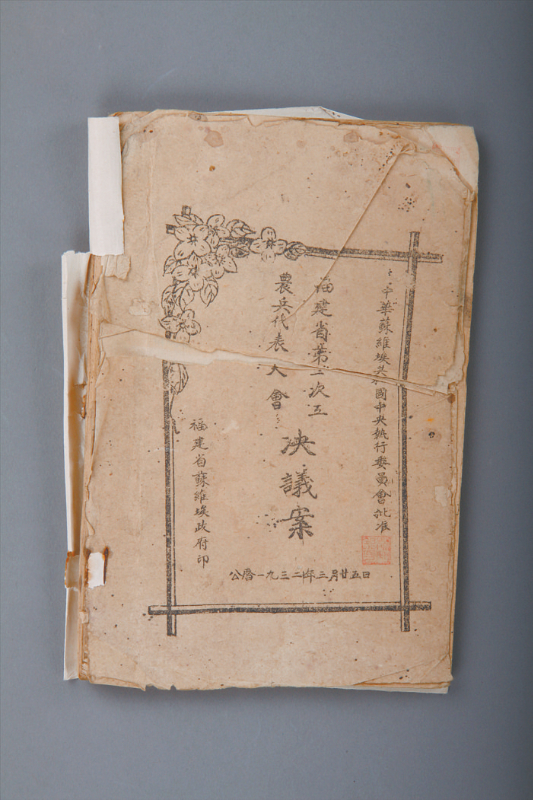 中華蘇維埃共國中央执行委員會批准
福建省第次工
農兵代表大會
決議案
福建省蘇維埃政府印
公曆一九三二年三月廿五日